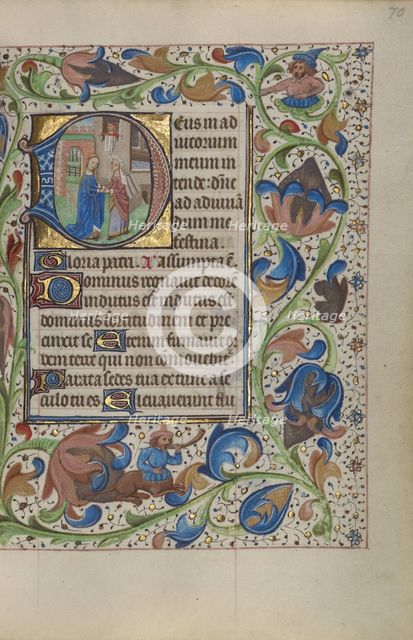 70
Deus in ad
iutorium
meum in
tende: dñe
ad adiuuã
dum me
festina.
Gloria patri. A Assumpta ẽ
Dominus regnauit decorẽ
indutus est indutus est
dominus fortitudinem et pre
cinxit se Etenim firmauit or
bem terre qui non commouebit̃
Parata sedes tua ex tunc a se
culo tu es Eleuauerunt flu
Heritage
Heritage
Heritage
Heritage